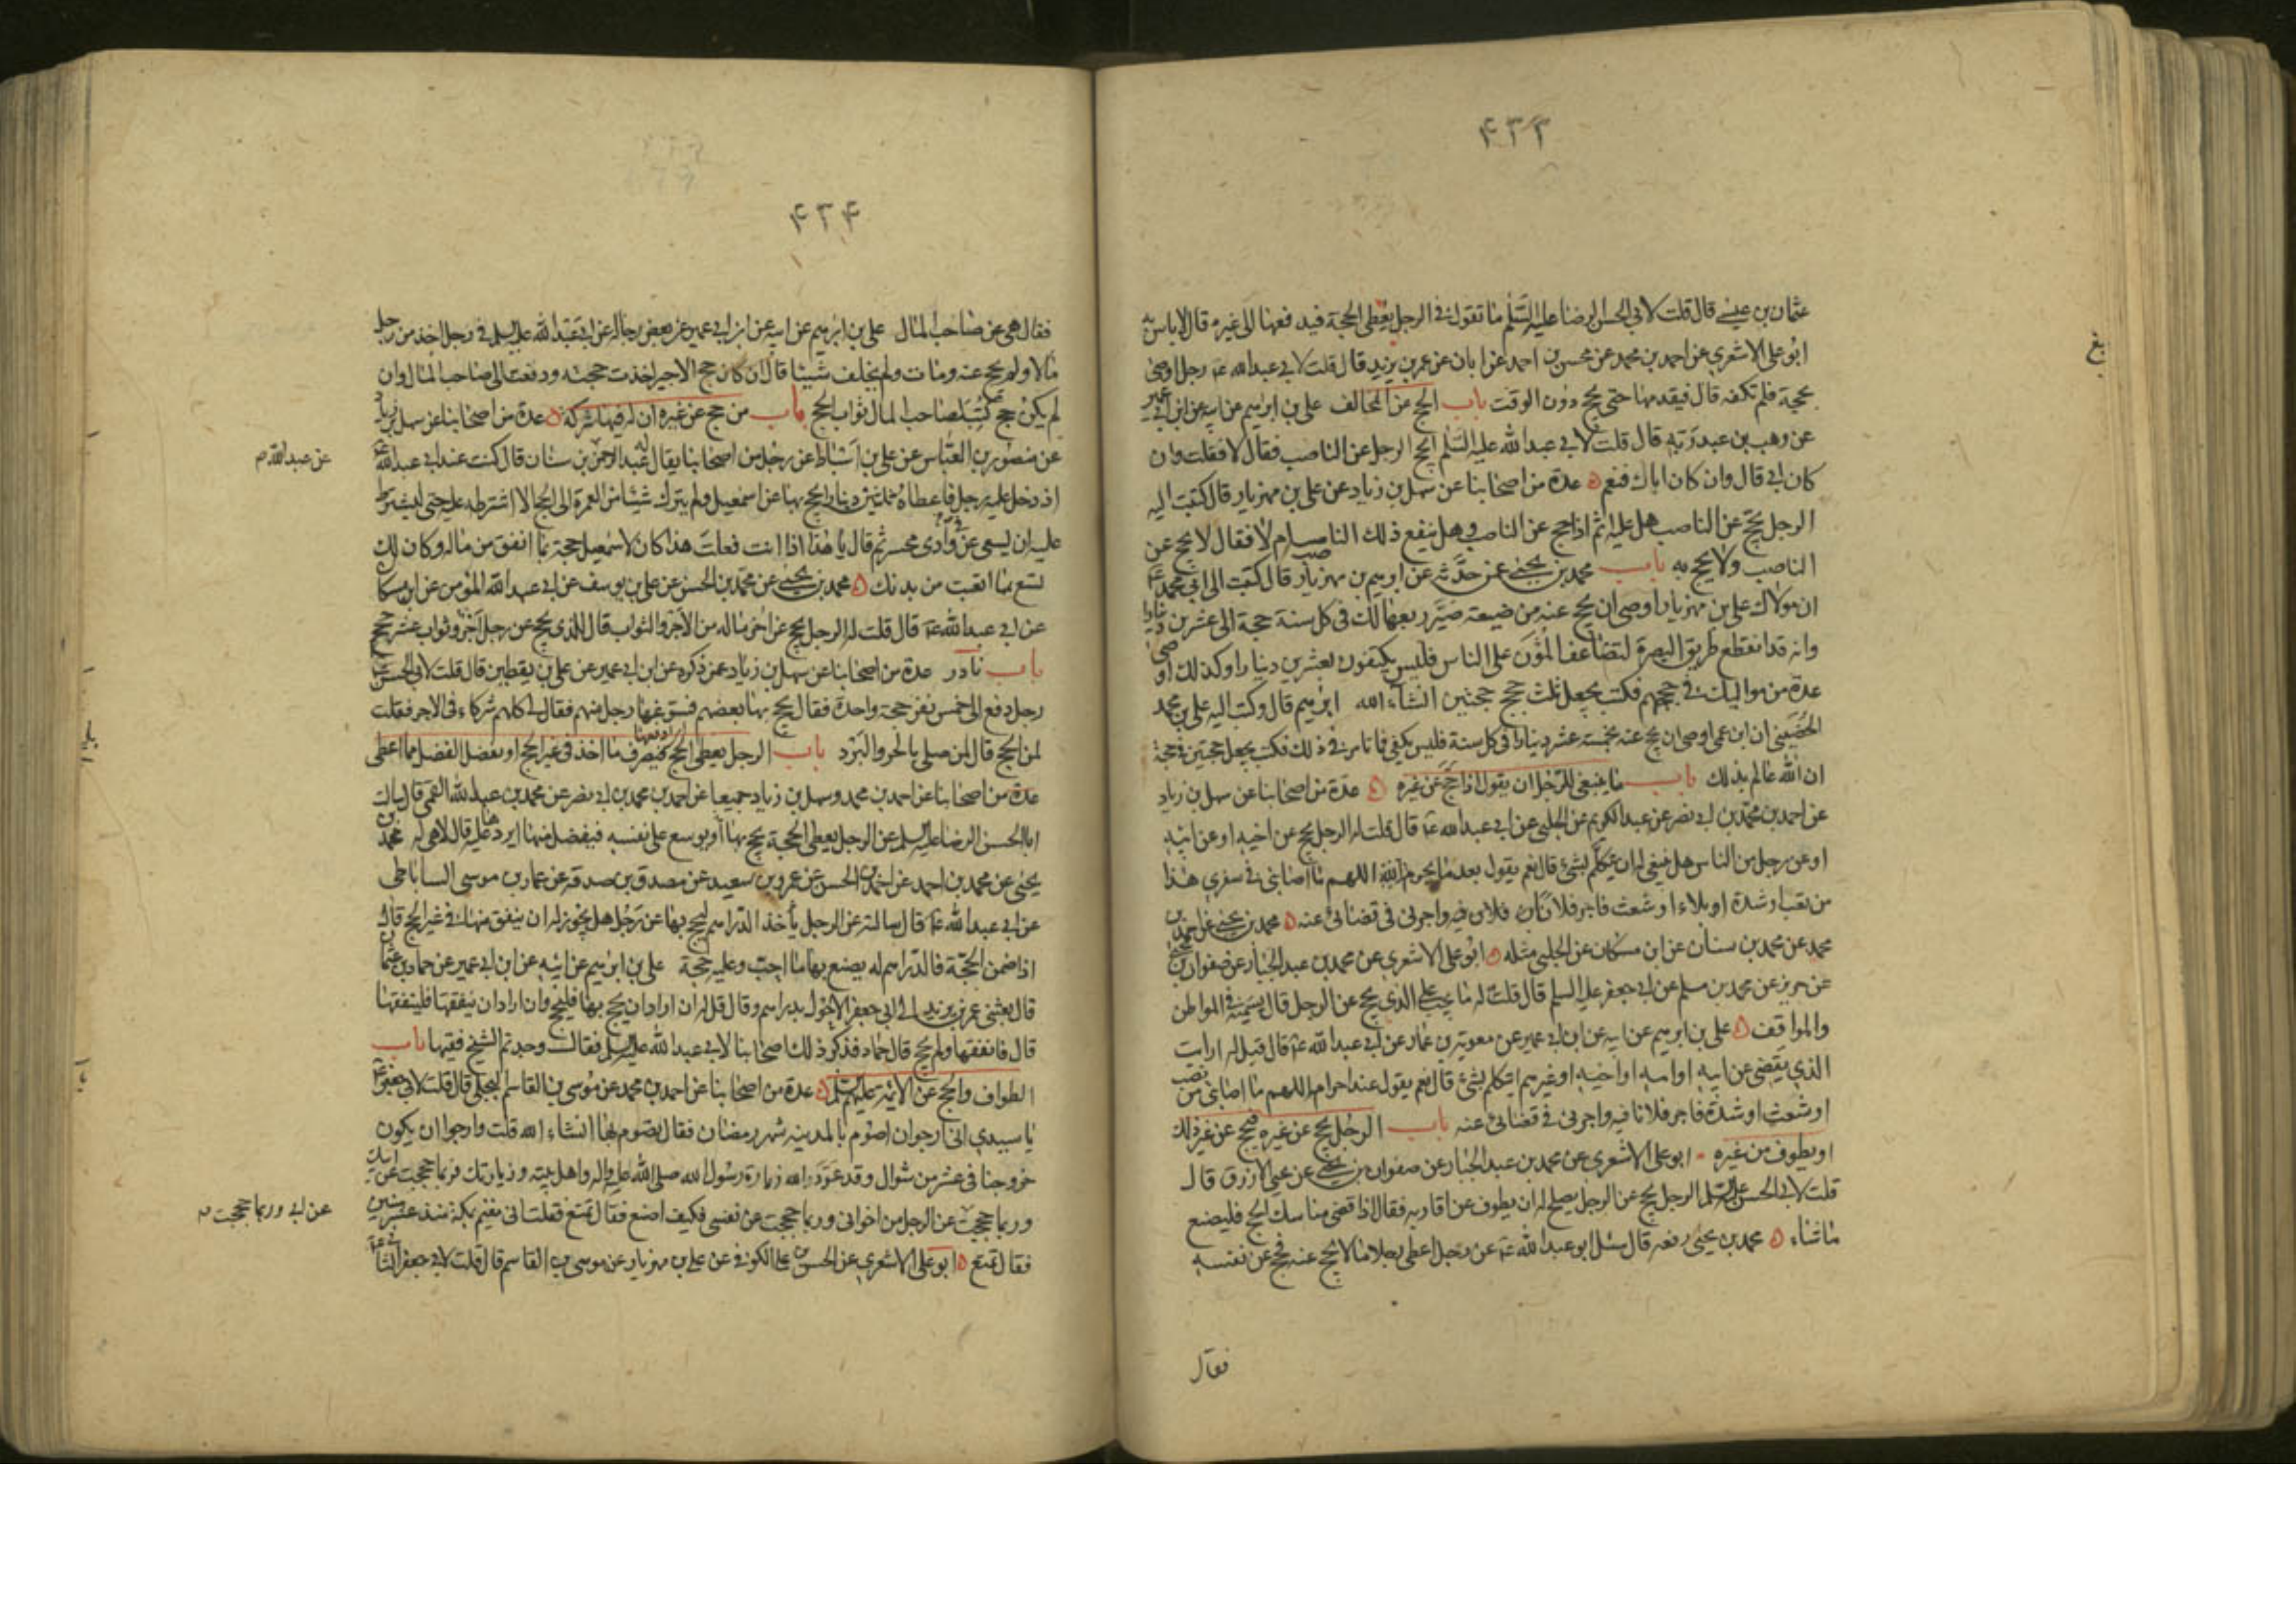 ٤٢٣
عثمان بن عيسى قال قلت لابي الحسن الرضا عليه السلم ما تقول في الرجل يعطى الحجة فيدفعها الى غيره قال لاباس به
ابو على الاشعري عن احمد بن محمد عن محسن بن احمد عن ابان عن عمر بن يزيد قال قلت لابي عبد الله ع رجل اوصى
بحجة فلم تكفه قال فيقدمها حتى يحج دون الوقت باب الحج عن المخالف علي بن ابرهيم عن ابيه عن ابن ابي عمير
عن وهب بن عبد ربه قال قلت لابي عبد الله عليه السلم ايحج الرجل عن الناصب فقال لا فقلت وان
كان ابي قال وان كان اباك فنعم عدة من اصحابنا عن سهل بن زياد عن علي بن مهزيار قال كتبت اليه
الرجل يحج عن الناصب هل عليه اثم اذا حج عن الناصب وهل ينفع ذلك الناصب ام لا فقال لا يحج عن
الناصب ولا يحج به باب محمد بن يحيى عمن حدثه عن ابرهيم بن مهزيار قال كتبت الى ابي محمد ع
ان مولاك علي بن مهزيار اوصى ان يحج عنه من ضيعة صير ربعها لك في كل سنة حجة الى عشرين دينارا
وانه قد انقطع طريق البصرة لتضاعف المؤن على الناس فليس يكتفون بعشرين دينارا وكذلك اوصى
عدة من مواليك في حججهم فكتب يجعل ثلث حجج حجتين انشاء الله ابرهيم قال وكتب اليه علي بن محمد
الحضيني ان ابن عمي اوصى ان يحج عنه بخمسة عشر دينارا في كل سنة فليس يكفي فما تامر في ذلك فكتب يجعل حجتين في حجة
ان الله عالم بذلك باب ما ينبغي للرجل ان يقول اذا حج عن غيره عدة من اصحابنا عن سهل بن زياد
عن احمد بن محمد بن ابي نصر عن عبد الكريم عن الحلبي عن ابي عبد الله ع قال قلت له الرجل يحج عن اخيه او عن ابيه
او عن رجل من الناس هل ينبغي له ان يتكلم بشئ قال نعم يقول بعد ما يحرم اللهم ما اصابني في سفري هذا
من تعب او شدة او بلاء او شعث فاجر فلانا فيه واجرني في قضائي عنه محمد بن يحيى عن احمد بن
محمد عن محمد بن سنان عن ابن مسكان عن الحلبي مثله ابو على الاشعري عن محمد بن عبد الجبار عن صفوان بن يحيى
عن حريز عن محمد بن مسلم عن ابي جعفر عليه السلم قال قلت له ما يجب على الذي يحج عن الرجل قال يسميه في المواطن
والمواقف علي بن ابرهيم عن ابيه عن ابن ابي عمير عن معوية بن عمار عن ابي عبد الله ع قال قيل له ارايت
الذي يقضي عن ابيه او امه او اخيه او غيرهم ايتكلم بشئ قال نعم يقول عند احرامه اللهم ما اصابني من نصب
او شعث او شدة فاجر فلانا فيه واجرني في قضائي عنه باب الرجل يحج عن غيره فحج عن غير ذلك
او يطوف من غيره ابو على الاشعري عن محمد بن عبد الجبار عن صفوان بن يحيى عن يحيى الازرق قال
قلت لابي الحسن عليه السلم الرجل يحج عن الرجل يصلح له ان يطوف عن اقاربه فقال اذا قضى مناسك الحج فليصنع
ماشاء محمد بن يحيى رفعه قال سئل ابو عبد الله ع عن رجل اعطى رجلا مالا يحج عنه فحج عن نفسه
فقال
٤٢٤
فقال هي عن صاحب المال علي بن ابرهيم عن ابيه عن ابن ابي عمير عن بعض رجاله عن ابي عبد الله عليه السلم في رجل اخذ من رجل
مالا ولم يحج عنه ومات ولم يخلف شيئا قال ان كان حج الاجير اخذت حجته ودفعت الى صاحب المال وان
لم يكن حج كتب لصاحب المال ثواب الحج باب من حج عن غيره ان له فيها شركة عدة من اصحابنا عن سهل بن زياد
عن منصور بن العباس عن علي بن اسباط عن رجل من اصحابنا يقال له عبد الرحمن بن سنان قال كنت عند ابي عبد الله ع
عن عبد الله م
اذ دخل عليه رجل فاعطاه ثلثين دينارا يحج بها عن اسمعيل ولم يترك شيئا من العمرة الى الحج الا اشترطه عليه حتى اشترط
عليه ان يسعى عن وادي محسر ثم قال يا هذا اذا انت فعلت هذا كان لاسمعيل حجة بما انفق من ماله وكان لك
تسع بما اتعبت من بدنك محمد بن يحيى عن محمد بن الحسن عن علي بن يوسف عن ابي عبد الله المؤمن عن ابن مسكان
عن ابي عبد الله ع قال قلت له الرجل يحج عن اخر ماله من الاجر والثواب قال للذي يحج عن رجل اجر وثواب عشر حجج
باب نادر عدة من اصحابنا عن سهل بن زياد عمن ذكره عن ابن ابي عمير عن علي بن يقطين قال قلت لابي الحسن ع
رجل دفع الى خمس نفر حجة واحدة فقال يحج بها بعضهم فسوغها رجل منهم فقال لي كلهم شركاء في الاجر فقلت
لمن الحج قال لمن صلى بالحر والبرد باب الرجل يعطى الحج فيصرف ما اخذ في غير الحج او تفضل الفضل مما اعطى
عدة من اصحابنا عن احمد بن محمد وسهل بن زياد جميعا عن احمد بن محمد بن ابي نصر عن محمد بن عبد الله القمي قال سالت
ابا الحسن الرضا عليه السلم عن الرجل يعطى الحجة يحج بها او يوسع على نفسه فيفضل منها ايردها عليه قال لا هي له محمد بن
يحيى عن محمد بن احمد عن احمد بن الحسن عن عمرو بن سعيد عن مصدق بن صدقة عن عمار بن موسى الساباطي
عن ابي عبد الله ع قال سالته عن الرجل يأخذ الدراهم ليحج بها عن رجل هل يجوز له ان ينفق منها في غير الحج قال
اذا ضمن الحجة فالدراهم له يصنع بها ما احب وعليه حجة علي بن ابرهيم عن ابيه عن ابن ابي عمير عن حماد بن عثمان
قال بعثني عمر بن يزيد الى ابي جعفر الاحول بدراهم وقال قل له ان اراد ان يحج بها فليحج وان اراد ان ينفقها فلينفقها
قال فانفقها ولم يحج قال حماد فذكر ذلك اصحابنا لابي عبد الله عليه السلم فقال وجدتم الشيخ فقيها باب
الطواف والحج عن الائمة عليهم السلم عدة من اصحابنا عن احمد بن محمد عن موسى بن القاسم البجلي قال قلت لابي جعفر ع
يا سيدي اني ارجو ان اصوم بالمدينه شهر رمضان فقال تصوم بها انشاء الله قلت وارجوا ان يكون
خروجنا في عشر من شوال وقد عود الله زيارة رسول الله صلى الله عليه واله واهل بيته وزيارتك فربما حججت عن ابيك
وربما حججت عن الرجل من اخواني وربما حججت عن نفسي فكيف اصنع فقال تمتع فقلت اني مقيم بمكة منذ عشر سنين
عن ابي وربما حججت
فقال تمتع ابو على الاشعري عن الحسن بن علي الكوفي عن علي بن مهزيار عن موسى بن القاسم قال قلت لابي جعفر الثاني ع